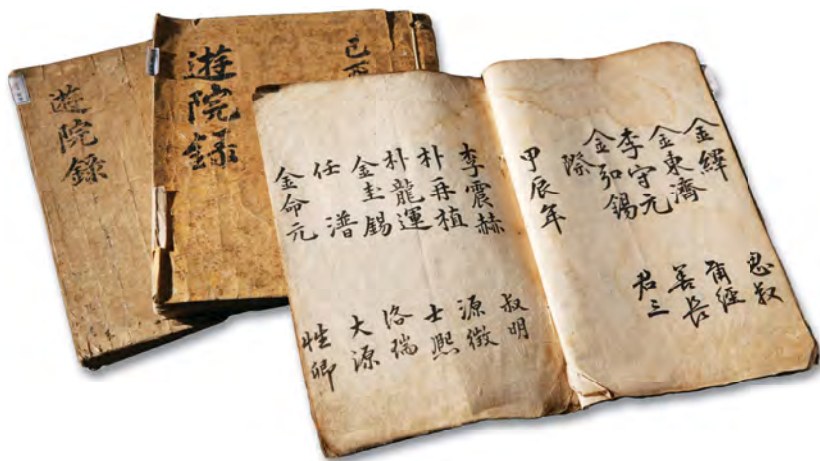 遊院錄
遊院錄
己酉
金繹 思叔
金東濟 甫經
李守元 善長
金弘錫 君三
際
甲辰年
李震赫 叔明
朴再植 源徵
朴龍運 士熙
金圭錫 洛瑞
任潽 大源
金命元 性卿